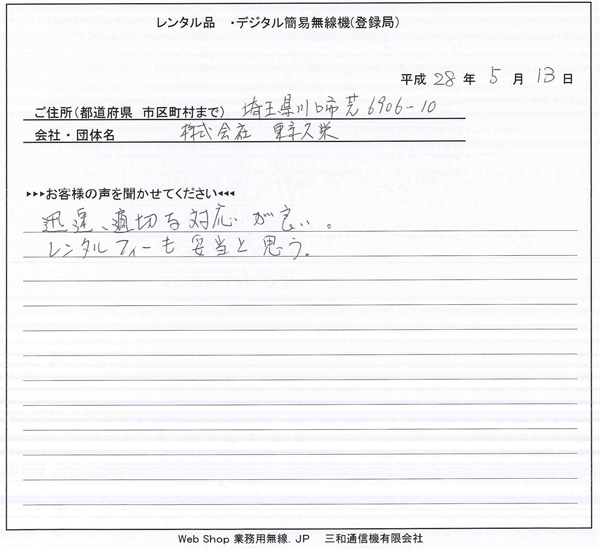 レンタル品 ・デジタル簡易無線機(登録局)
平成 28 年 5 月 13 日
ご住所(都道府県 市区町村まで) 埼玉県川口市芝6906-10
会社・団体名 株式会社 東京久栄
▸▸▸お客様の声を聞かせてください◂◂◂
迅速、適切な対応が良い。
レンタルフィーも妥当と思う。
Web Shop 業務用無線. JP 三和通信機有限会社